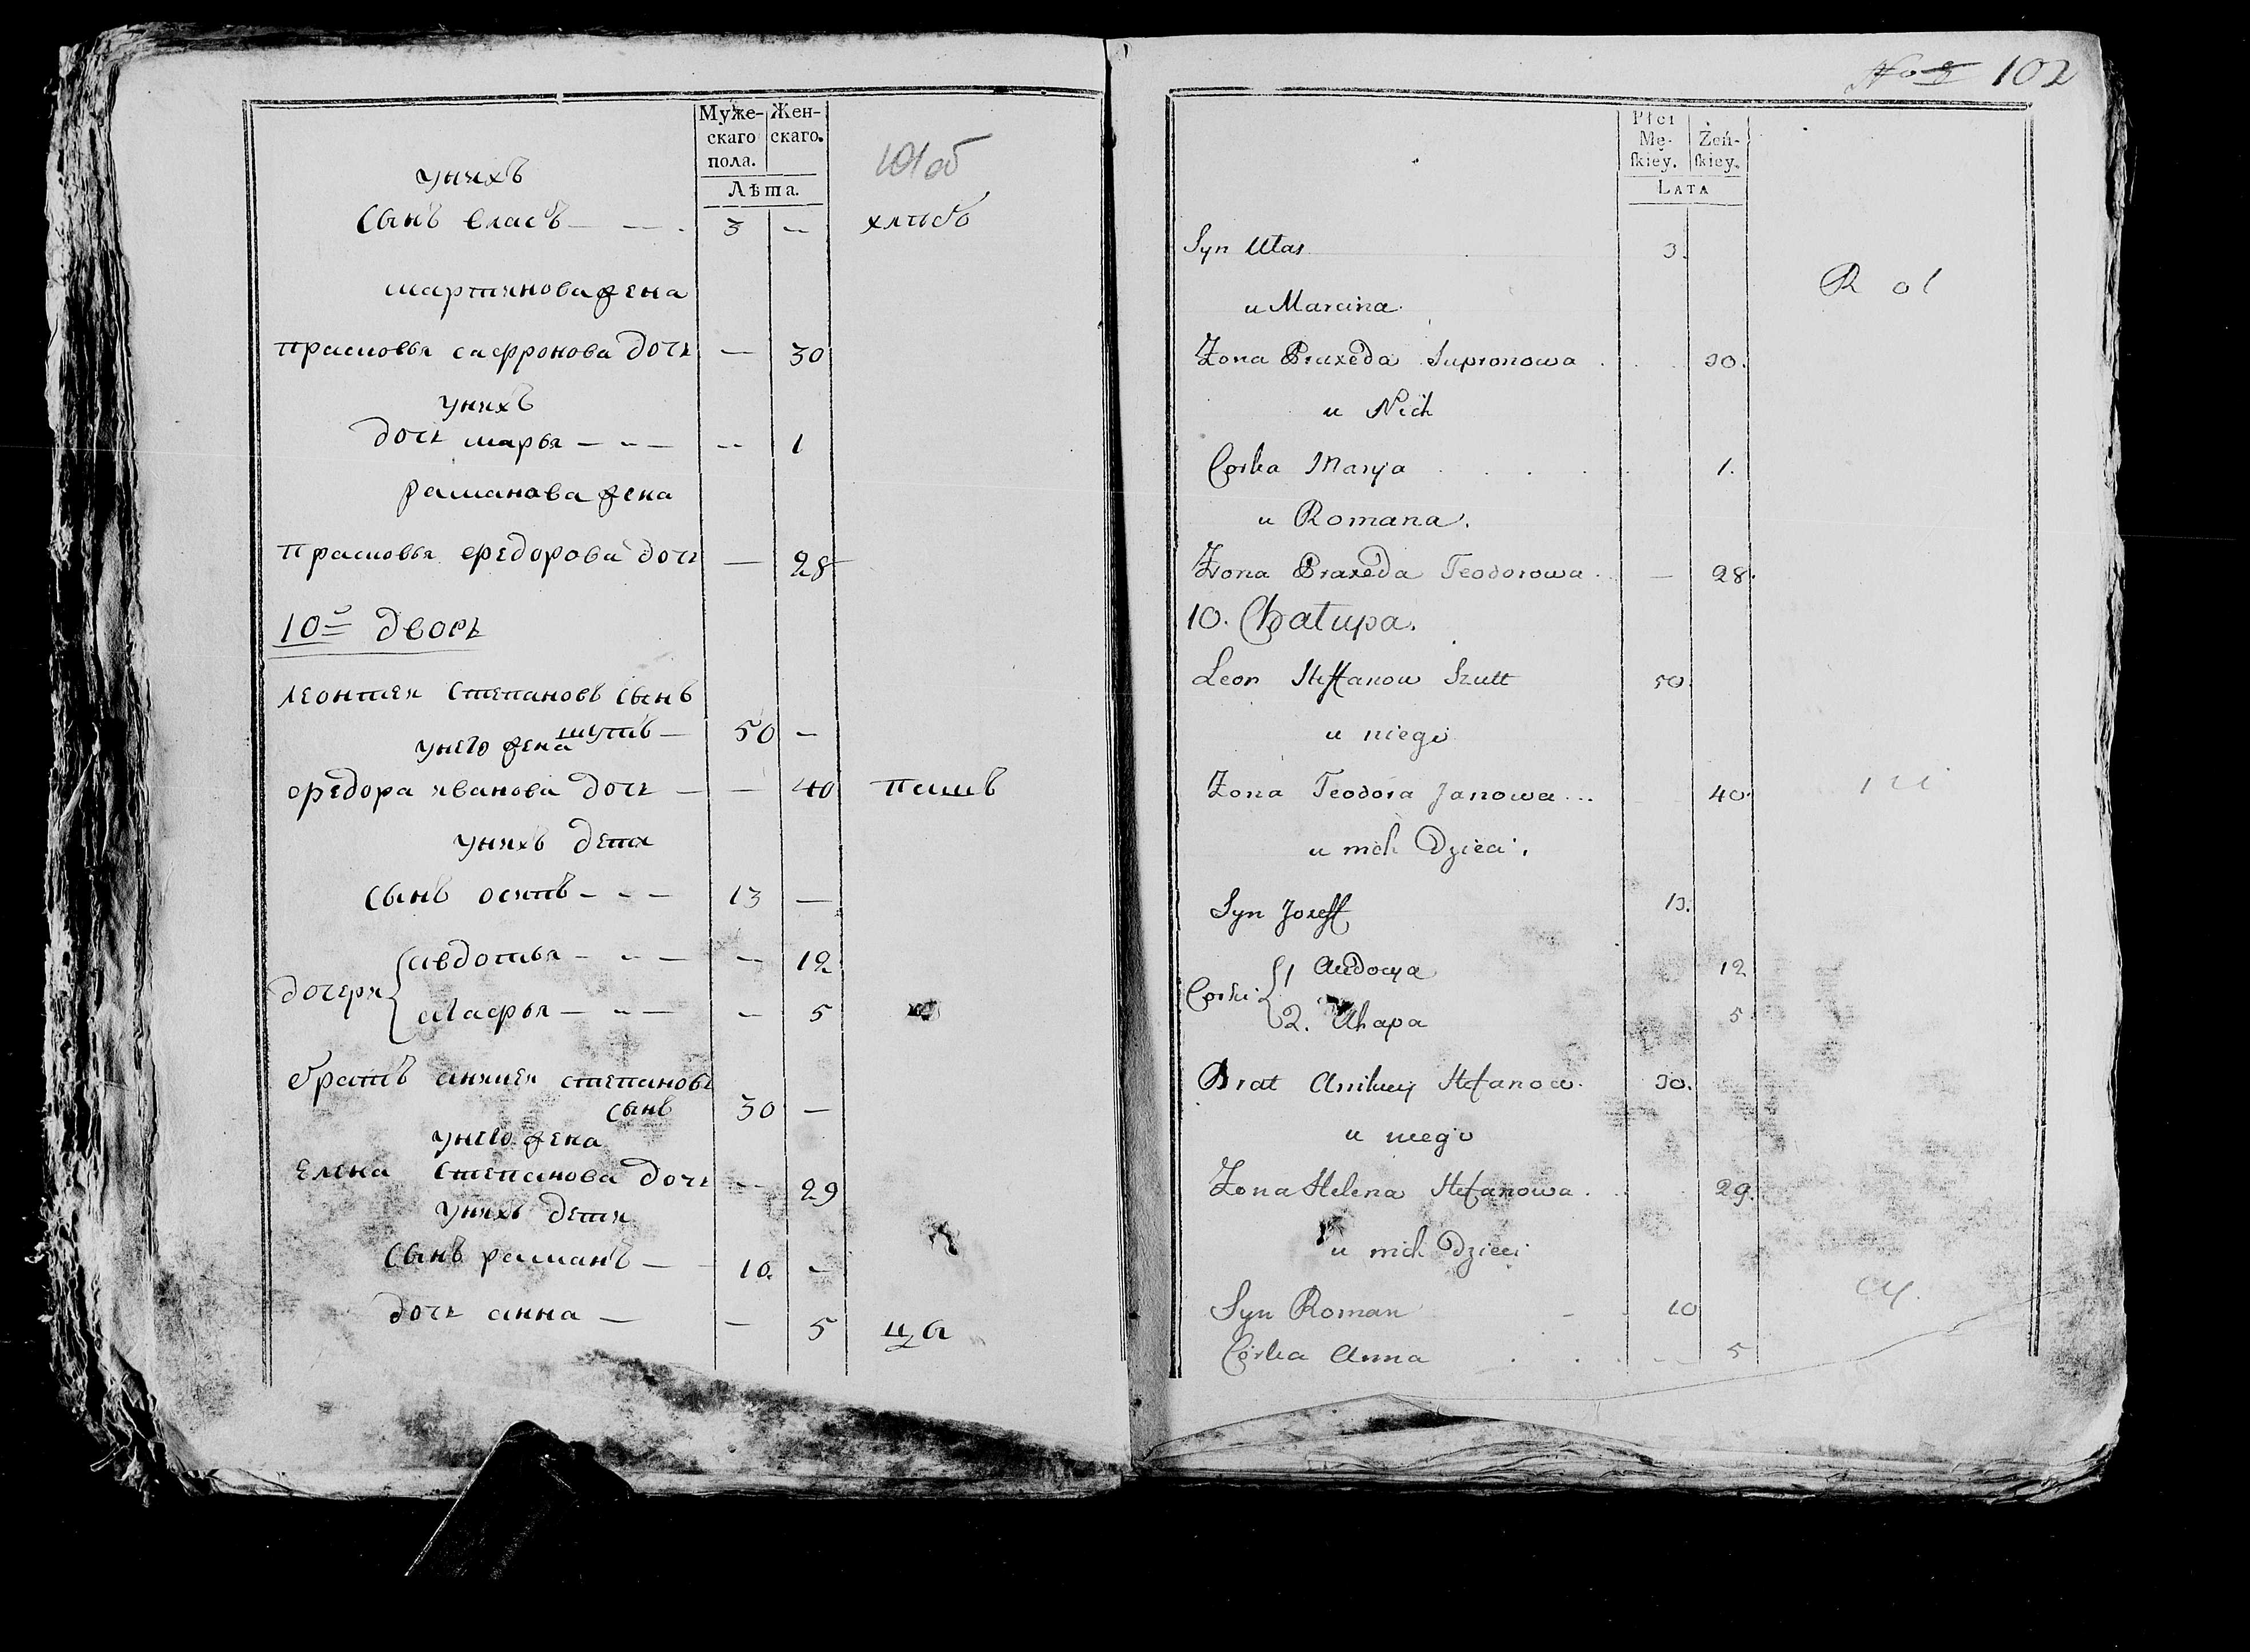 Муже-
скаго
пола.
Жен-
скаго.
Лѣта.
101об
унихъ
сынъ власъ — — — 3 —
хлѣбо
мартинова жена
прасковья сафронова дочь — 30
унихъ
дочь марья — — — 1
раманова жена
прасковья федорова дочь — 28
10й дворъ
леонтеи степановъ сынъ
шутъ — 50 —
унего жена
федора иванова дочь — 40
пашъ
унихъ дети
сынъ осипъ — — — 13 —
дочери
авдотья — — — 12
агафья — — — 5
братъ аникеи степановъ
сынъ 30 —
унего жена
елена степанова дочь — 29
унихъ дети
сынъ раманъ — 10. —
дочь анна — — 5
ца
102
Płci
Mę-
ſkiey.
Żeń-
ſkiey.
LATA
Syn Ułas 3.
R ol
u Marcina
Zona Praxeda Supronowa 30.
u Nich
Corka Marya 1.
u Romana.
Zona Praxeda Teodorowa — 28.
10. Chałupa.
Leon Steffanow Szutt 50
u niego
Zona Teodora Janowa ... 40.
u nich Dzieci.
Syn Jozeff 13.
Corki
1 Audocya 12
2. Ahapa 5
Brat Anikiey Stefanow 30.
u niego
Zona Helena Stefanowa 29.
u nich Dzieci
Syn Roman 10
Córka Anna 5